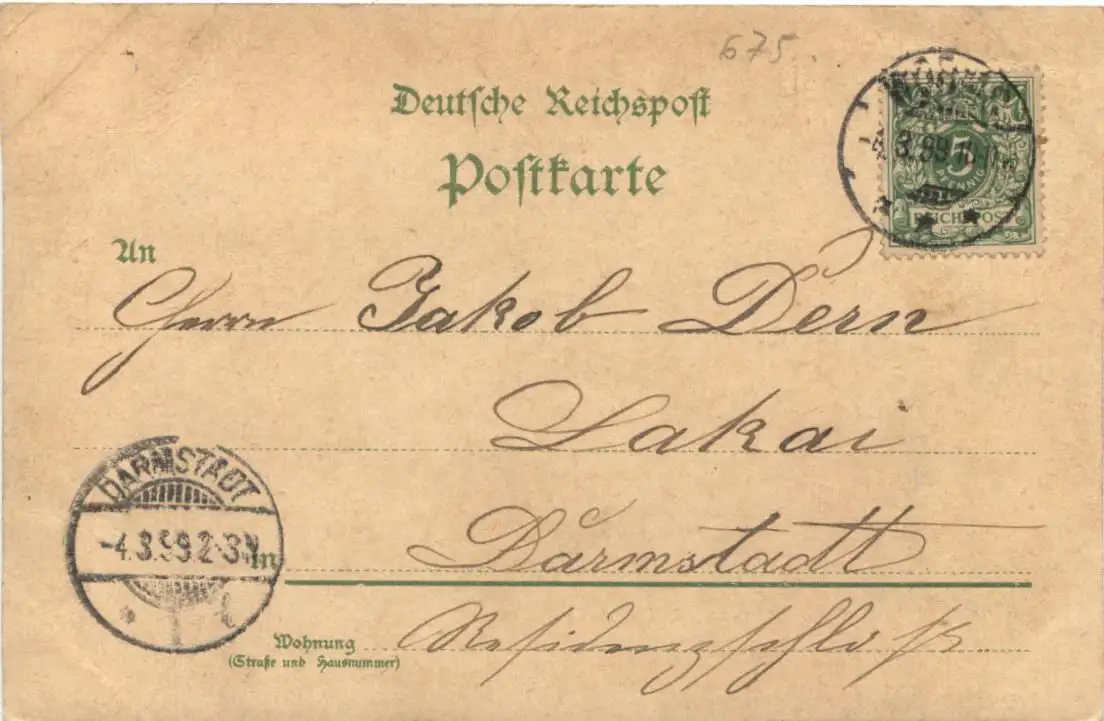 675.
Deutsche Reichspost
Postkarte
5
PFENNIG
REICHSPOST
-4.3.99.
An
Herrn Jakob Dern
Lakai
Darmstadt
in
DARMSTADT
-4.3.99.2-3N
1
Residenzschloß
Wohnung
(Straße und Hausnummer)